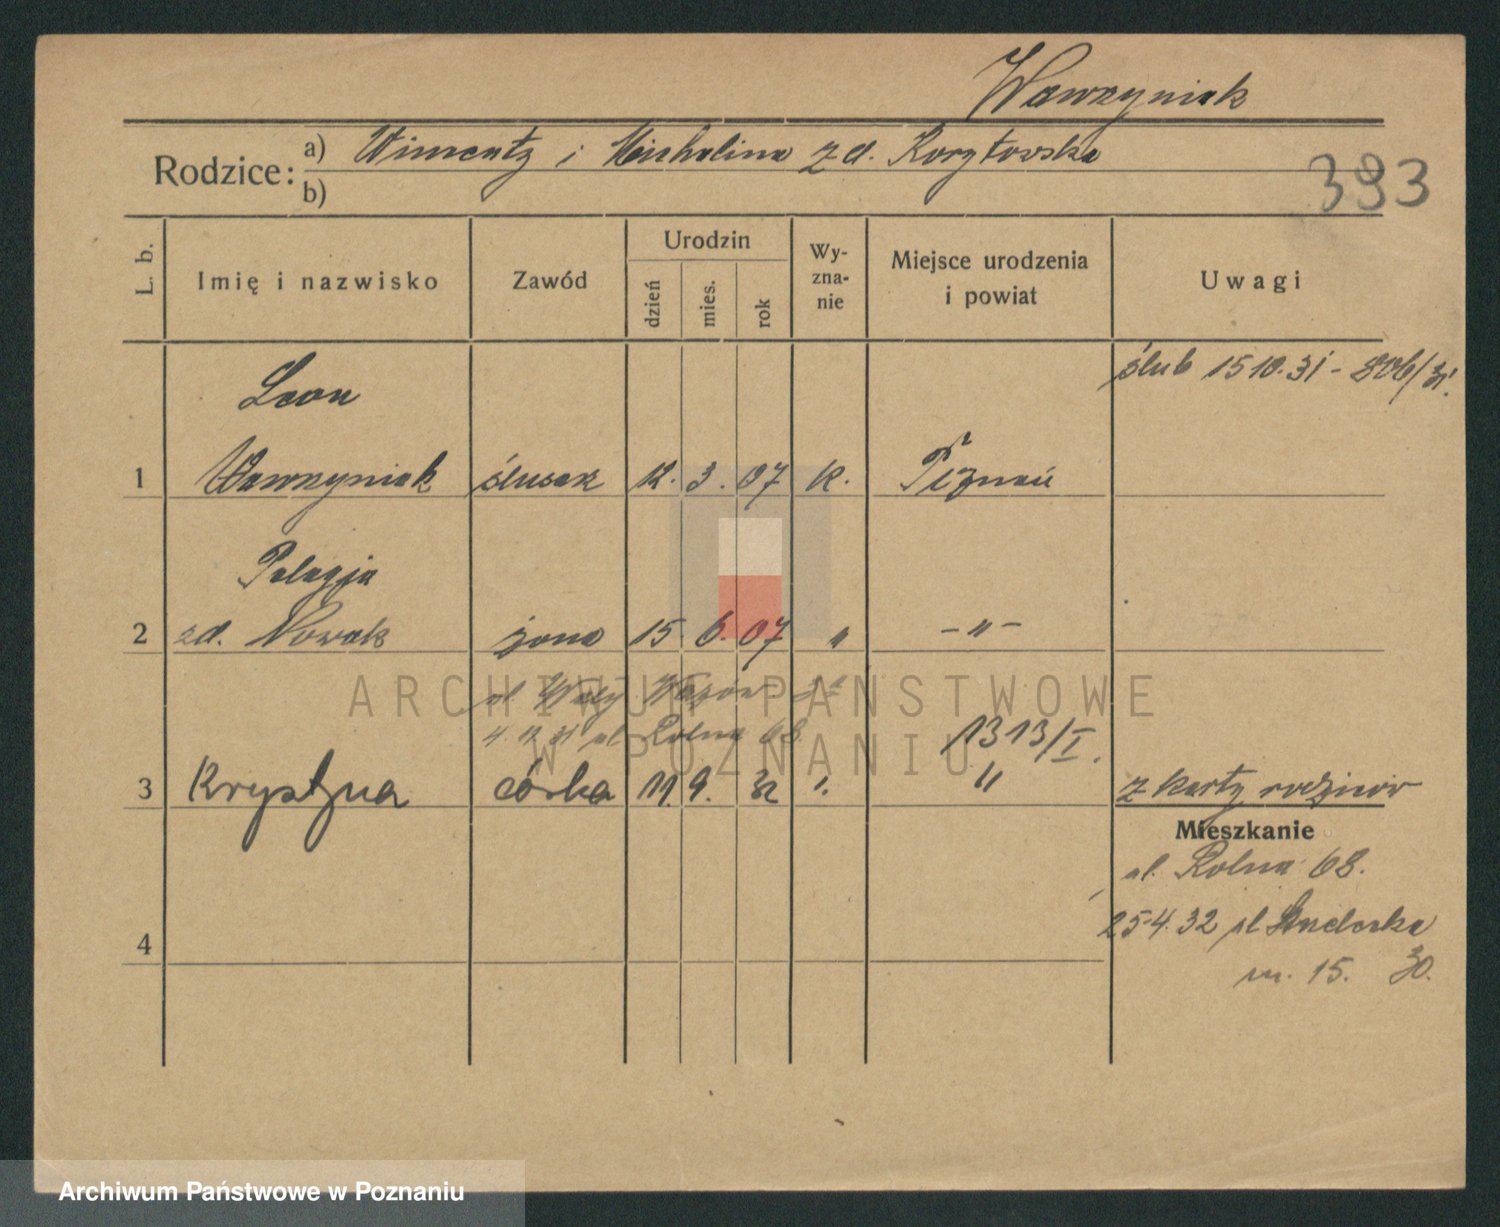 Wawrzyniak
Rodzice: a) Wincenty i Michalina zd. Korytowska
b)
393
L. b.
Imię i nazwisko
Zawód
Urodzin
dzień
mies.
rok
Wy-
zna-
nie
Miejsce urodzenia
i powiat
Uwagi
ślub 15 10. 31 - 806/31.
Leon
1 Wawrzyniak ślusarz 12. 3. 07 k. Poznań
Pelagja
2 zd. Nowak żona 15 6. 07 „ -„-
ul. Wały
4. 12 31 ul. Rolna 68.
1313/I.
3 Krystyna córka 11. 9. 32 „ z karty rodziców
Mieszkanie
ul. Rolna 68.
25-4. 32 ul
m. 15. 30.
4
ARCHIWUM PAŃSTWOWE
W POZNANIU
Archiwum Państwowe w Poznaniu